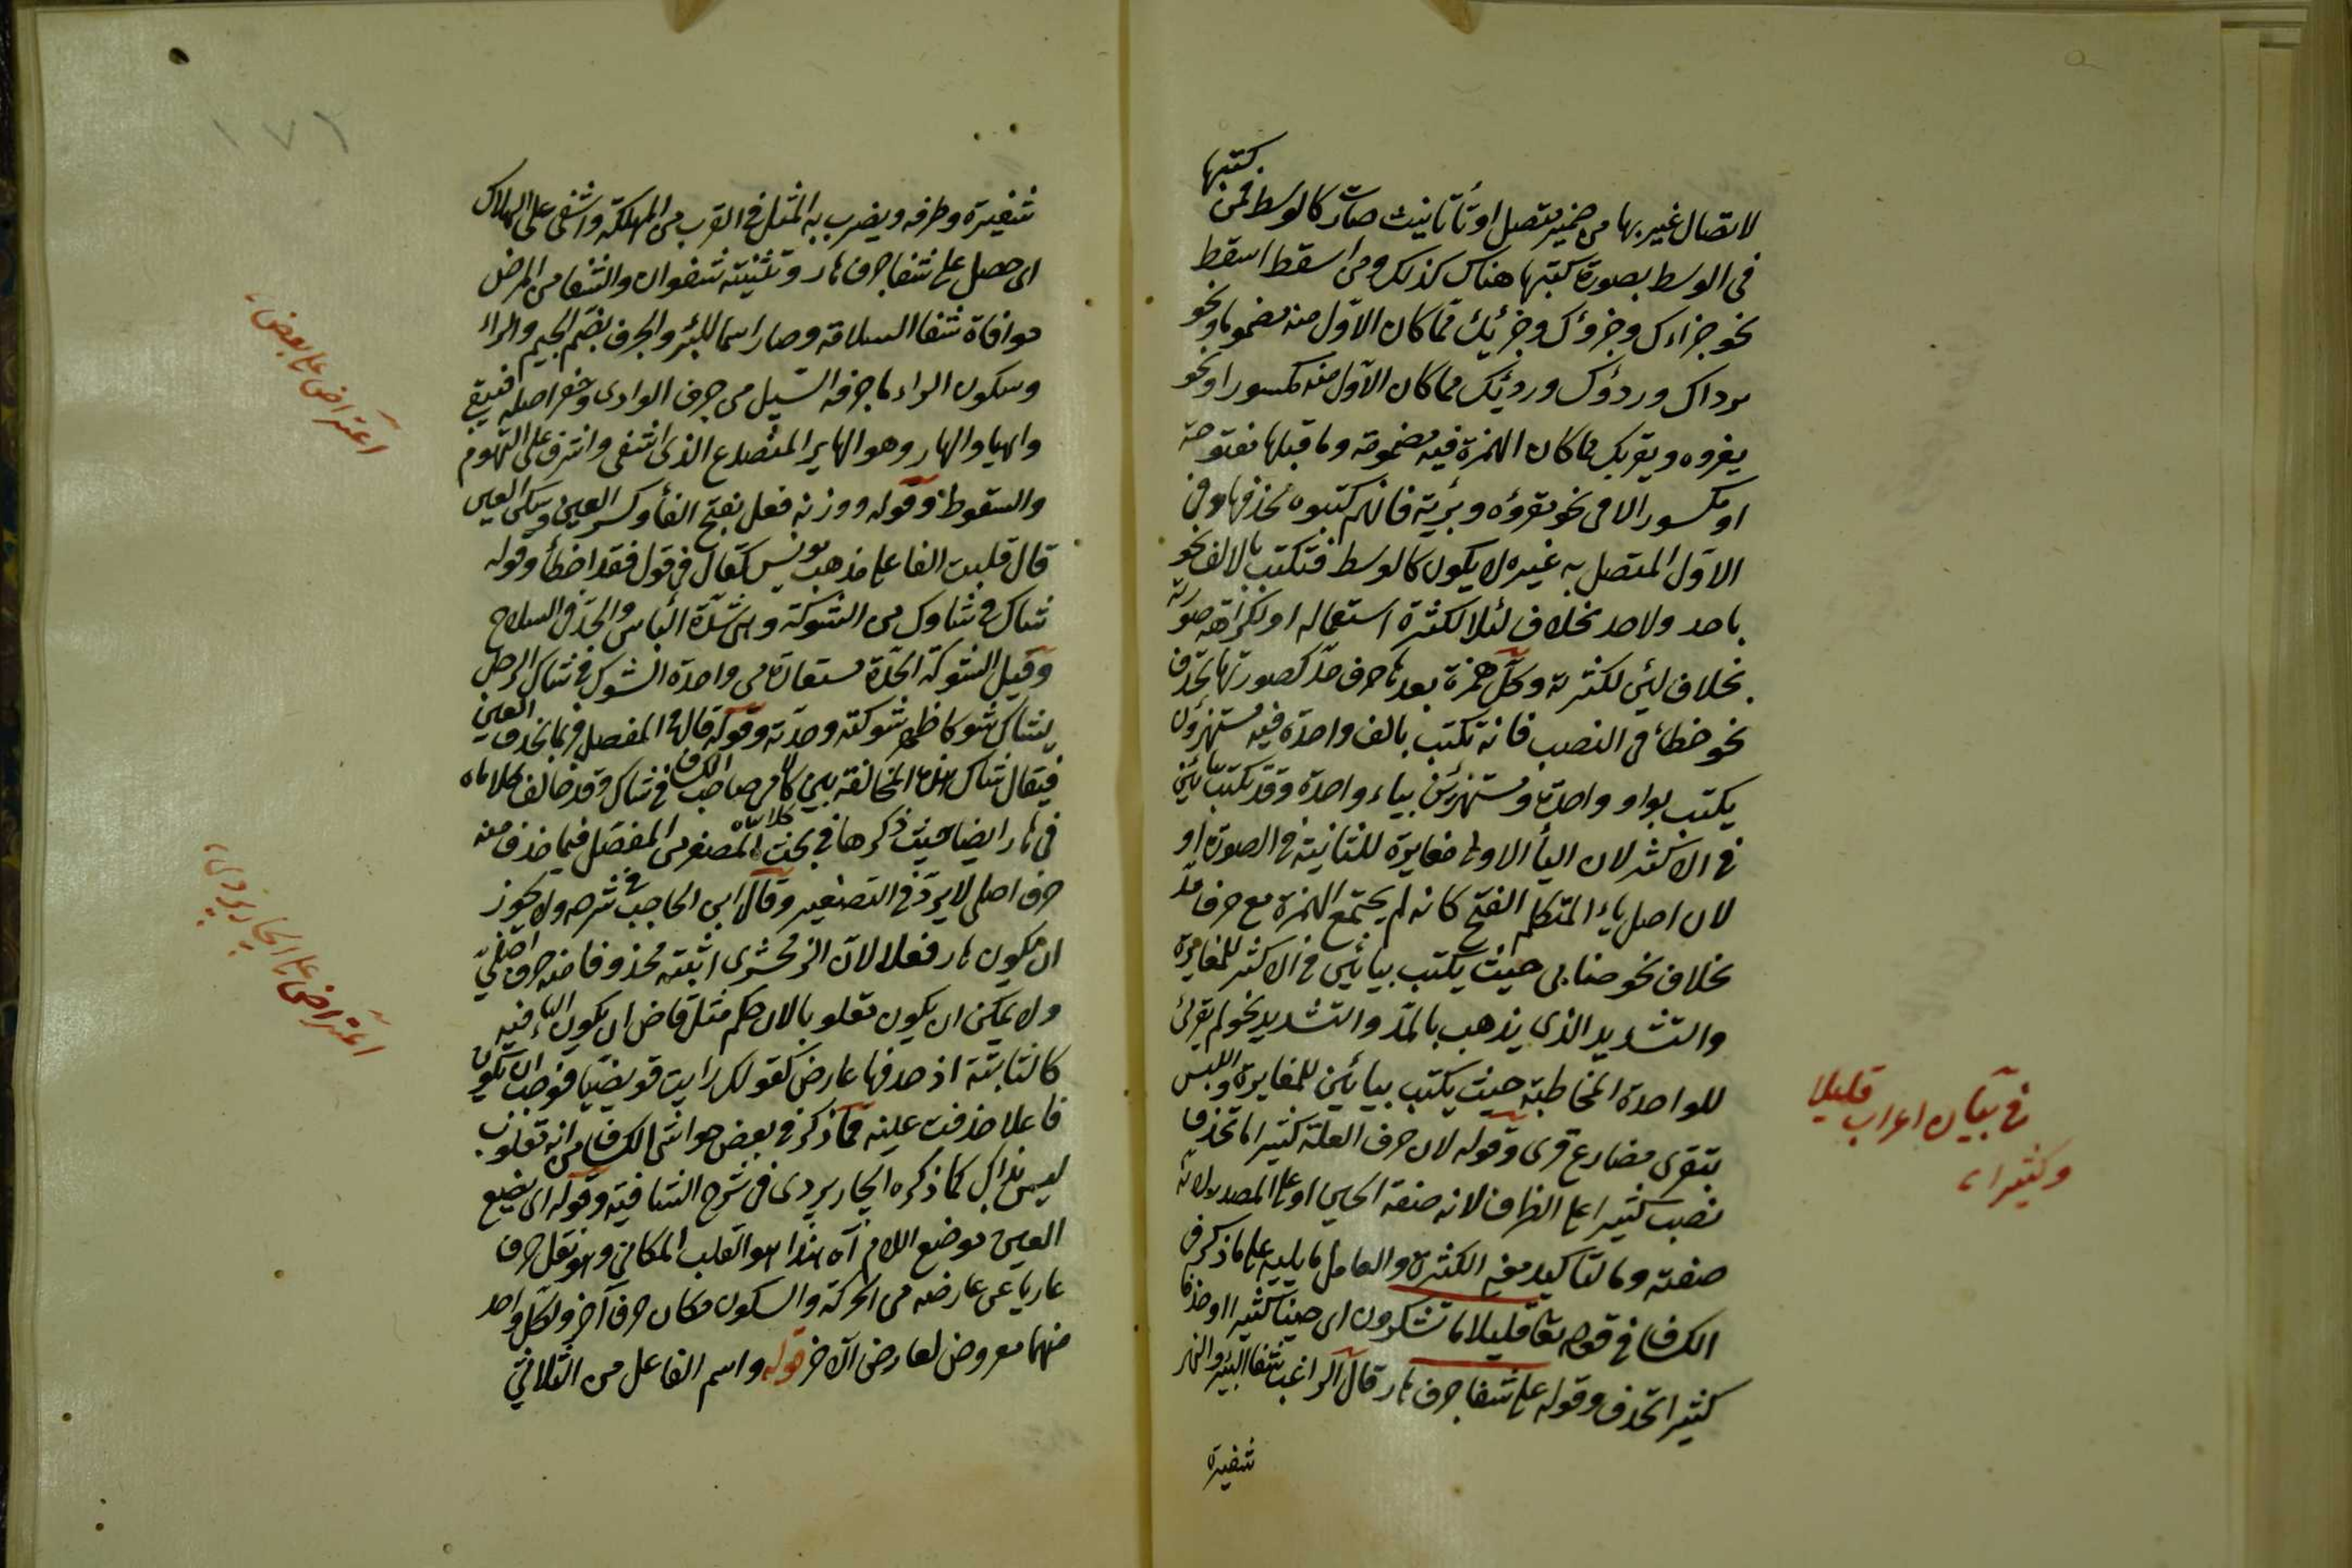 كتبها
لاتصال غيرها من ضمير متصل او تاء تأنيث صارت كالوسط فمن
فى الوسط بصورة كتبها هناك كذلك ومن اسقط اسقط
نحو جزاءك وجزؤك وجزئيك مما كان الاول منه مضموما ونحو
رداك وردؤك وردئك مما كان الاول منه مكسورا ونحو
يقروه ويقريك مما كان الهمزة فيه مضمومة وما قبلها مفتوحة
او مكسور الا فى نحو مقروؤه وبريئة فانهم كتبوه بحذفها وفى
الاول المتصل به غيره لا يكون كالوسط فتكتب بالالف نحو
باحد ولاحد بخلاف لئلا لكثرة استعماله او لكراهة صورته
بخلاف لئن لكثرته وكل همزة بعدها حرف مد كصورتها تحذف
نحو خطأ فى النصب فانه تكتب بالف واحدة فيه مستهزؤن
يكتب بواو واحدة ومستهزئين بياء واحدة وقد يكتب بيائين
فى الاكثر لان اليأ الاولى مغايرة للثانية فى الصورة او
لان اصل ياء المتكلم الفتح كانه لم يجتمع الهمزة مع حرف مد
بخلاف نحو حنايى حيث يكتب بيائين فى الاكثر للمغايرة
والتشديد الذى يذهب بالمد والتشديد نحو لم تقرئى
للواحدة المخاطبة حيث يكتب بيائين للمغايرة واللبس
بتقرى مضارع قرى وقوله لان حرف العلة كثيرا ما تحذف
نصب كثيرا على الظرف لانه صفة الحين او على المصدر لانه
صفته وما لتأكيد معنى الكثرة والعامل ما يليه على ما ذكر فى
الكشاف فى قوله تعا قليلا ما تشكرون اى حينا كثيرا او حذفا
كثيرا تحذف وقوله على شفا جرف هار قال الراغب شفا البئر والنهر
شفيرة
فى بيان اعراب قليلا
وكثيرا
١٧٦
شفيرة وطرفه ويضرب به المثل فى القرب من المهلكة واشفى على الهلاك
اى حصل على شفا جرف هار وتثنيته شفوان والشفا من المرض
موافاة شفا السلامة وصار اسما للبئر والجرف بضم الجيم والراء
وسكون الراء ما جرفه السيل من جرف الوادى وحفر اصله فبقى
واهيا والهار وهو الهاير المتصدع الذى اشفى واشرف على التهدم
والسقوط وقوله ووزنه فعل بفتح الفأ وكسر العين وسكن العين
قال قلبت الفا على مذهب يونس كتقال فى قول فقد اخطأ وقوله
شاك فى شاوك من الشوكة وهى شدة الباس والحد فى السلاح
وقيل الشوكة الحدة مستعارة من واحدة الشوك فى شاك الرجل
يشاك شوكا ظهر شوكته وحدته وقوله قال فى المفصل وربما تحذف العين
فيقال شاك هذه المخالفة بين كلامى صاحب الكشاف فى شاك وقد خالف كلاماه
فى هار ايضا حيث ذكرها فى بحث المصغر من المفصل فيما حذف منه
حرف اصلى لا يرد فى التصغير وقال ابن الحاجب فى شرحه ولا يجوز
ان يكون هار فعلا لان الزمخشرى اثبته محذوفا منه حرف اصلى
ولا يمكن ان يكون مقلوبا لان حكم مثل قاض ان يكون الياء فيه
كالثابتة اذ حذفها عارض كقولك رايت قويضيا فوجب ان يكون
فاعلا حذفت عينه فما ذكر فى بعض حواشى الكشاف من انه مقلوب
ليس بذاك كما ذكره الجاربردى فى شرح الشافية وقوله اى يضع
العين موضع اللام اه هذا هو القلب المكانى وهو نقل حرف
عاريا عن عارضه من الحركة والسكون مكان حرف آخر ولكل واحد
منهما معروض لعارض الآخر قوله واسم الفاعل من الثلاثى
اعتراض على بعض
اعتراض على الجاربردى